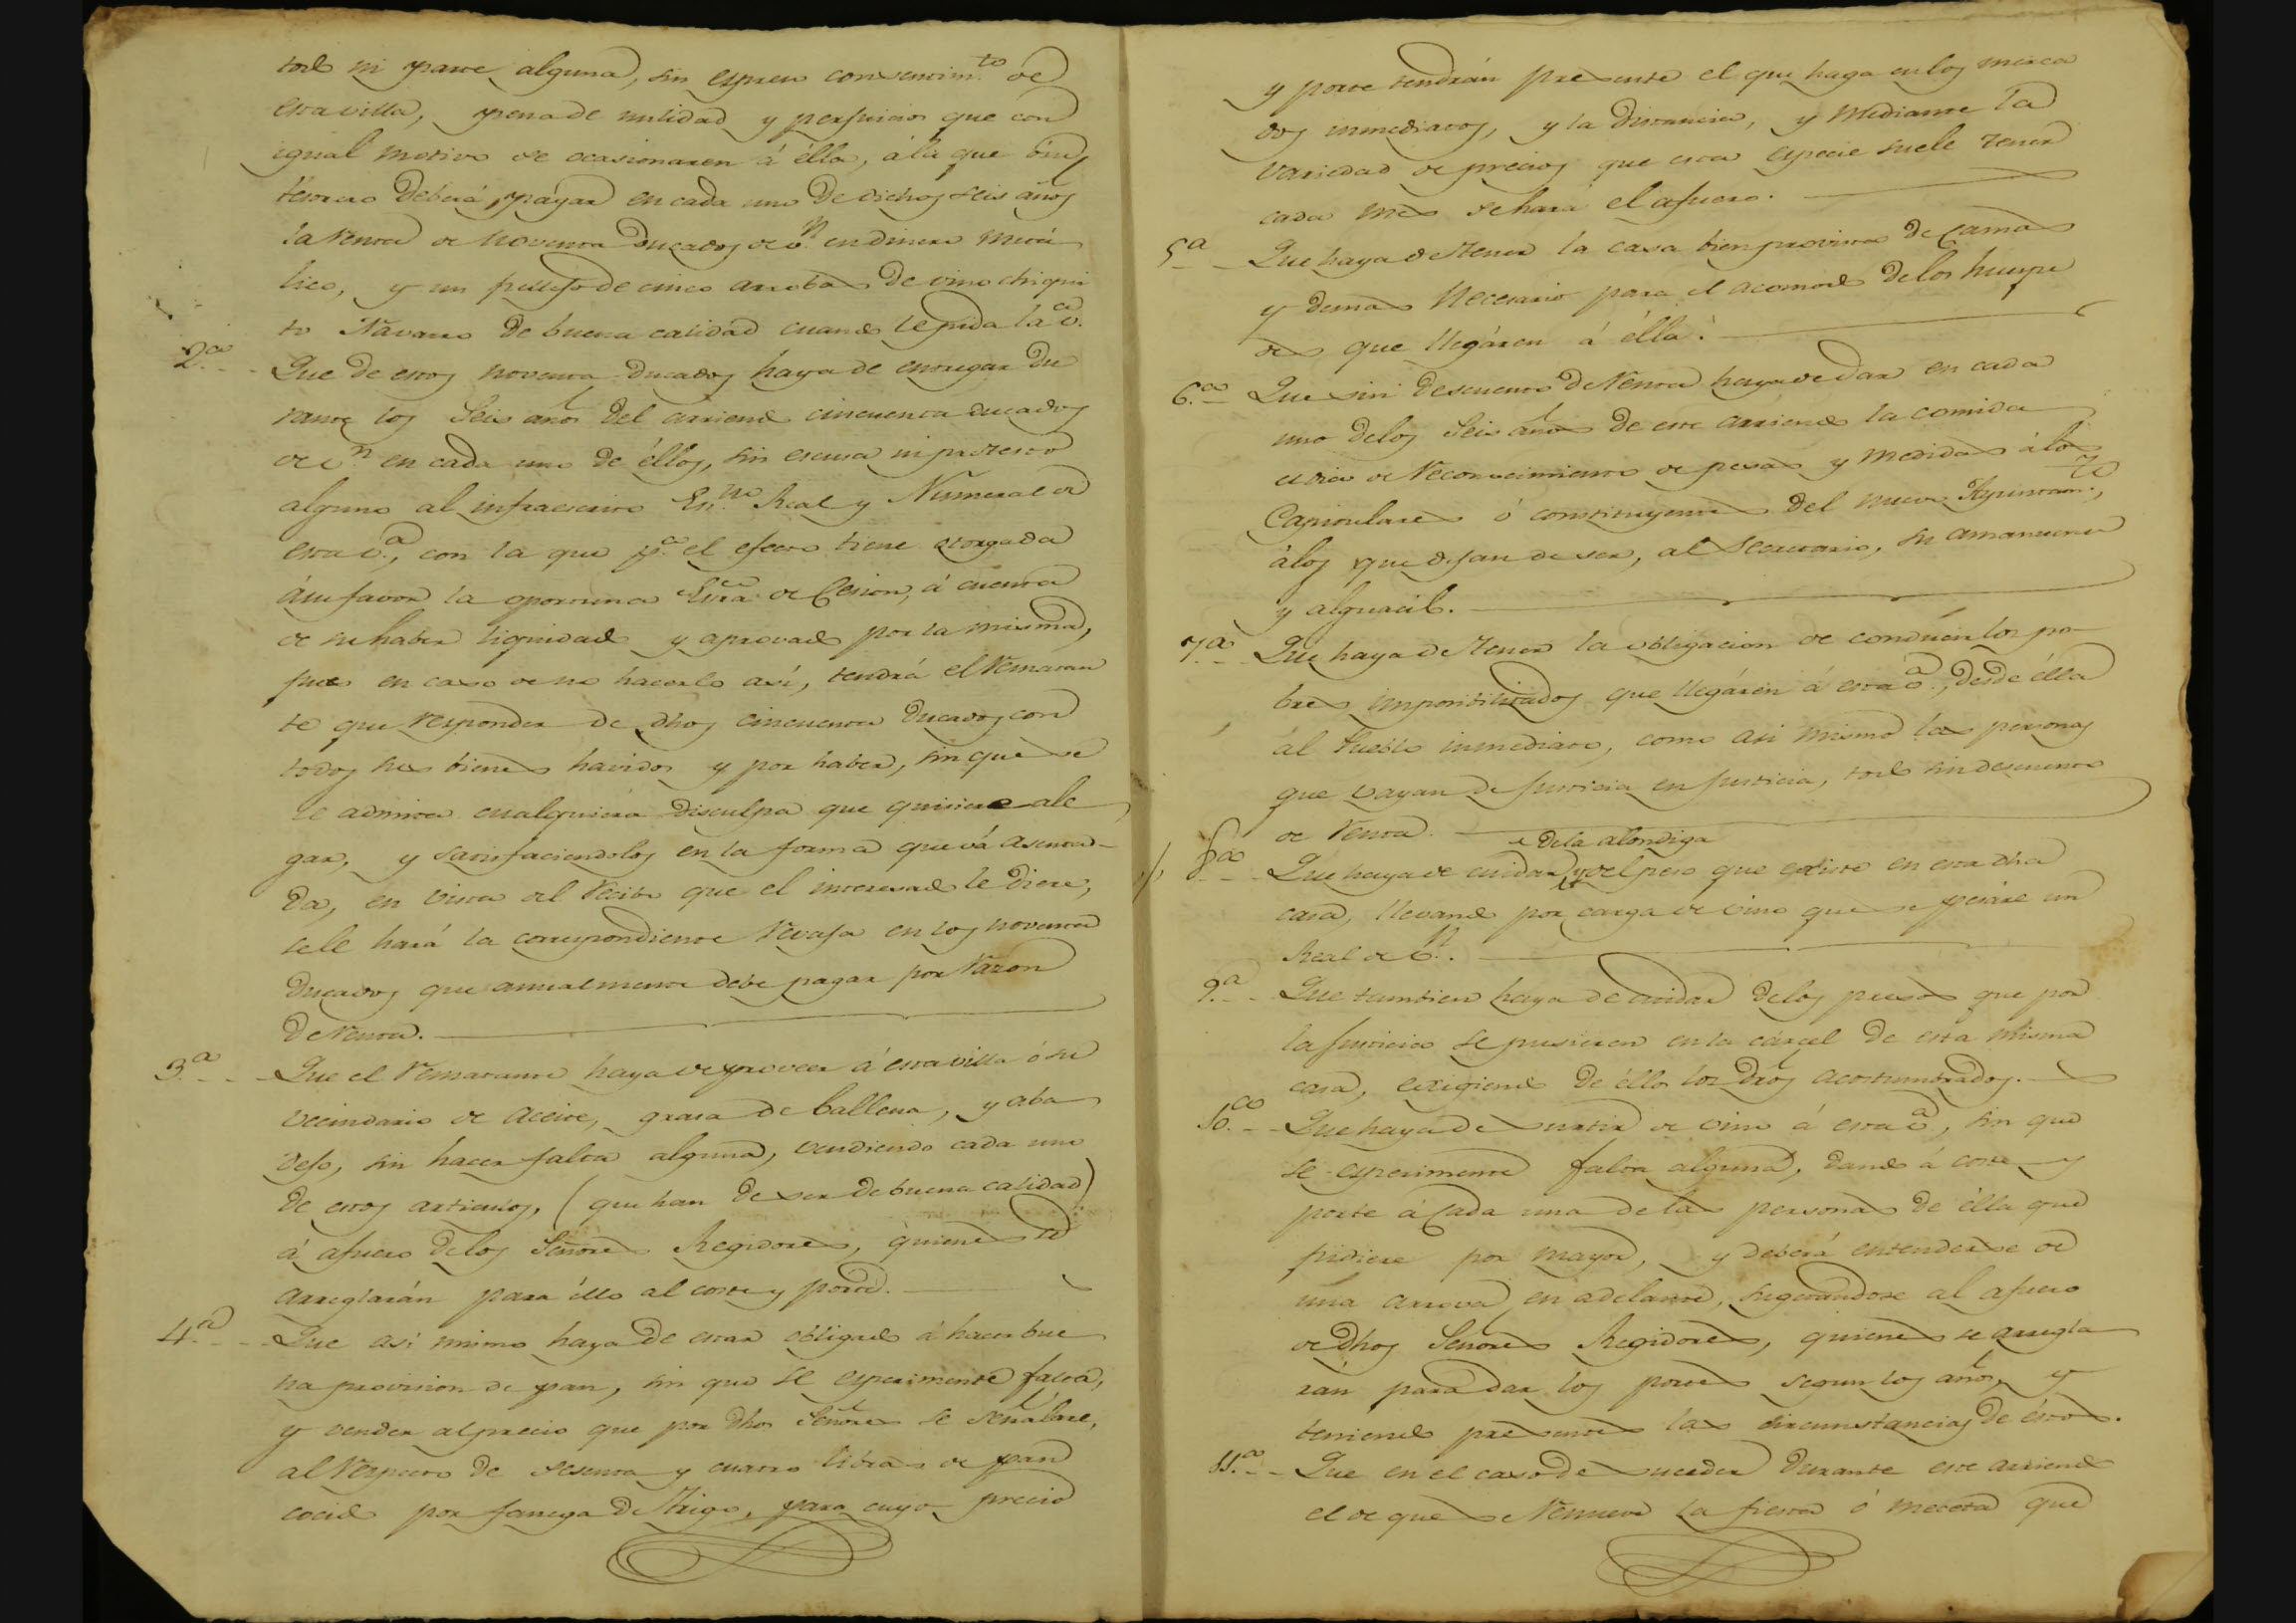 todo ni parte alguna, sin espreso consentim.to de
esta villa, pena de nulidad y perjuicios que con
igual motivo se ocasionaren á élla, á la que ó su
tesorero deberá pagar en cada uno de dichos seis años
la renta de noventa ducados de v.n en dinero metá
lico, y un pellejo de cinco arrobas de vino chiqui
to Navarro de buena calidad cuando le pida la v.a
2.a - Que de estos noventa ducados haya de entregar du
rante los seis años del arriendo cincuenta ducados
de v.n en cada uno de éllos, sin escusa ni pretesto
alguno al infraescrito Es.no Real y Numeral de
esta v.a, con la que p.a el efecto tiene otorgada
á su favor la oportuna Esc.ra de Cesion, á cuenta
de su haber liquidado y aprovado por la misma,
pues en caso de no hacerlo así, tendrá el Rematan
te que responder de dhos cincuenta ducados con
todos sus bienes havidos y por haber, sin que se
le admita cualquiera disculpa que quisiere ale
gar, y satisfaciendolos en la forma que vá asenta-
da, en vista del recibo que el interesado le diere,
se le hará la correspondiente revaja en los noventa
ducados que anualmente debe pagar por razon
de renta.
3.a - - Que el Rematante haya de proveer á esta villa ó su
vecindario de aceite, grasa de ballena, y aba
dejo, sin hacer falta alguna, vendiendo cada uno
de estos articulos, (que han de ser de buena calidad)
á afuero de los Señores Regidores, quienes se
arreglarán para éllo al coste y porte.
4.a - - Que asi mismo haya de estar obligado á hacer bue
na provision de pan, sin que se esperimente falta,
y vender al precio que por dhos Señores se señalare,
al respecto de sesenta y cuatro libras de pan
cocido por fanega de trigo, para cuyo precio
y porte tendrán presente el que haga en los merca
dos inmediatos, y la distancia, y mediante la
variedad de precios que esta especie suele tener
cada mes se hará el afuero.
5.a - Que haya de tener la casa bien provista de camas
y demas necesario para el acomodo de los huespe
des que llegáren á élla.
6.a - Que sin descuento de renta haya de dar en cada
uno de los seis años de este arriendo la comida
el dia de reconocimiento de pesas y medidas á los
Capitulares ó constituyentes del nuevo Ayuntam.to,
á los que dejan de ser, al Secretario, su amanuense
y alguacil.
7.a - Que haya de tener la obligacion de conducir los po-
bres imposibilitados que llegáren á esta v.a, desde élla
al Pueblo inmediato, como asi mismo las personas
que vayan de justicia en justicia, todo sin descuento
de renta.
e de la alondiga
8.a - - Que haya de cuidar y del peso que existe en esta dha
casa, llevando por carga de vino que se pesáre un
Real de v.n.
9.a - - Que tambien haya de cuidar de los presos que por
la justicia se pusieren en la cárcel de esta misma
casa, exigiendo de éllos los dros acostumbrados.
10.a - - Que haya de surtir de vino á esta v.a, sin que
se esperimente falta alguna, dando á coste y
porte á cada una de las personas de élla que
pidiere por mayor, y deberá entenderse de
una arrova en adelante, sugetandose al afuero
de dhos Señores Regidores, quienes se arregla
rán para dar los portes segun los años, y
teniendo presentes las circunstancias de éstos.
11.a - - Que en el caso de suceder durante este arriendo
el de que se renueve la fiesta ó meceta que